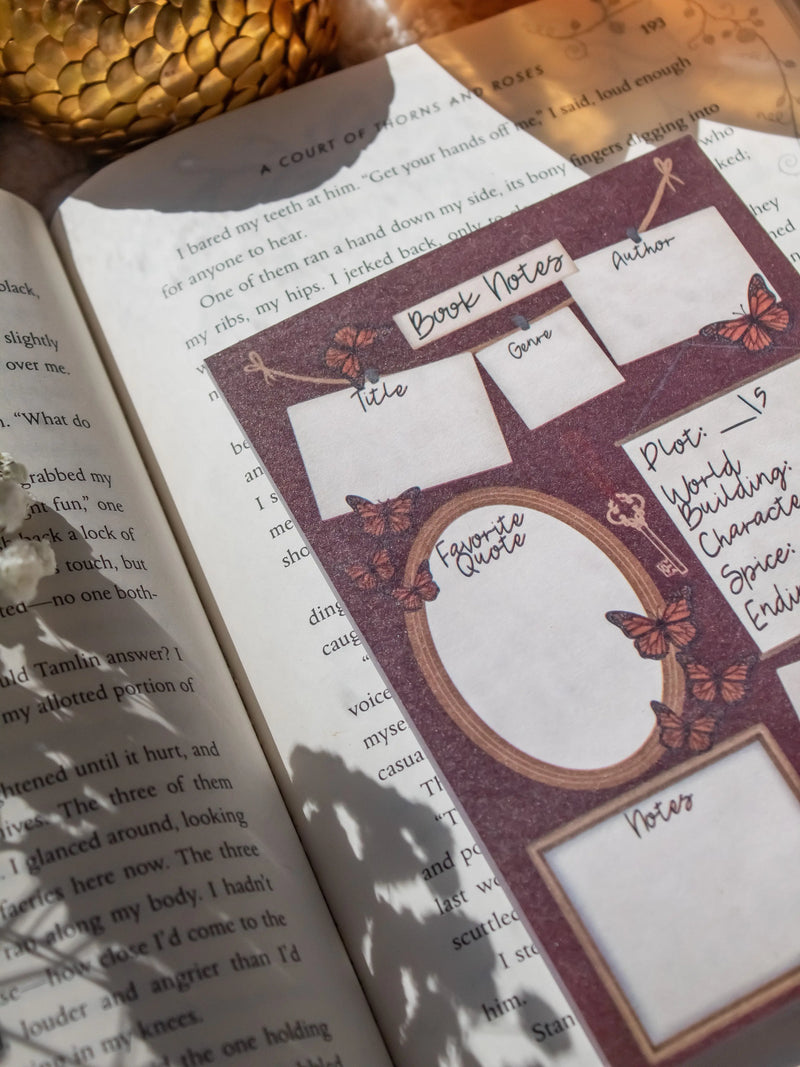 black,
slightly
over me.
"What do
grabbed my
fun," one
back a lock of
touch, but
—no one both-
Tamlin answer? I
my allotted portion of
until it hurt, and
The three of them
I glanced around, looking
faeries here now. The three
ran along my body. I hadn't
how close I'd come to the
louder and angrier than I'd
in my knees.
and the one holding
193
A COURT OF THORNS AND ROSES
I bared my teeth at him. "Get your hands off me," I said, loud enough
for anyone to hear.
One of them ran a hand down my side, its bony fingers digging into
my ribs, my hips. I jerked back, only to
who
they
I s
me
sho
ding
caug
voice
myse
casua
Th
"T
and po
last wo
scuttled
I sto
him.
Stan
Book Notes
Author
Genre
Title
Favorite
Quote
Plot: __/5
World
Building:
Characte
Spice:
Endin
Notes